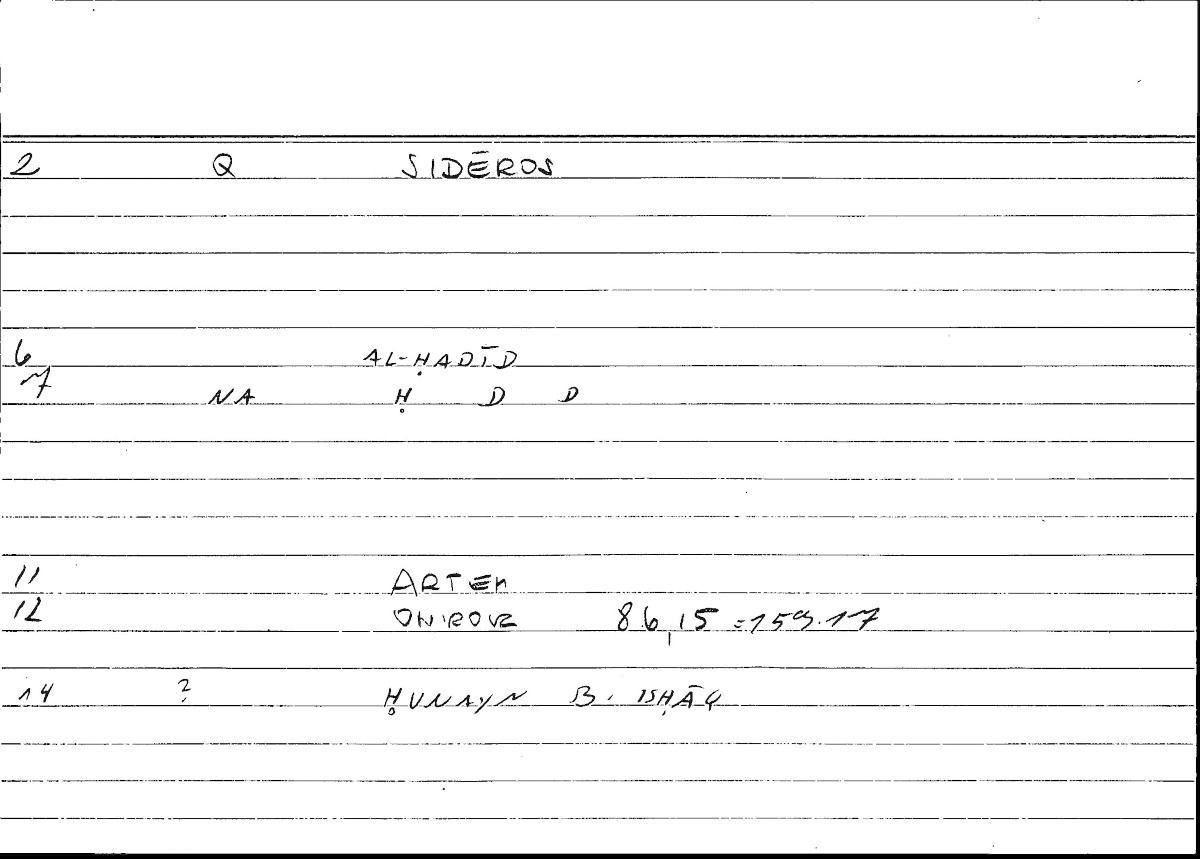 2 Q SIDĒROS
6 AL-ḤADĪD
7 NA Ḥ D D
11 ARTEM
12 ONIROCR 86,15 = 159.17
14 ? ḤUNAYN B. ISḤĀQ